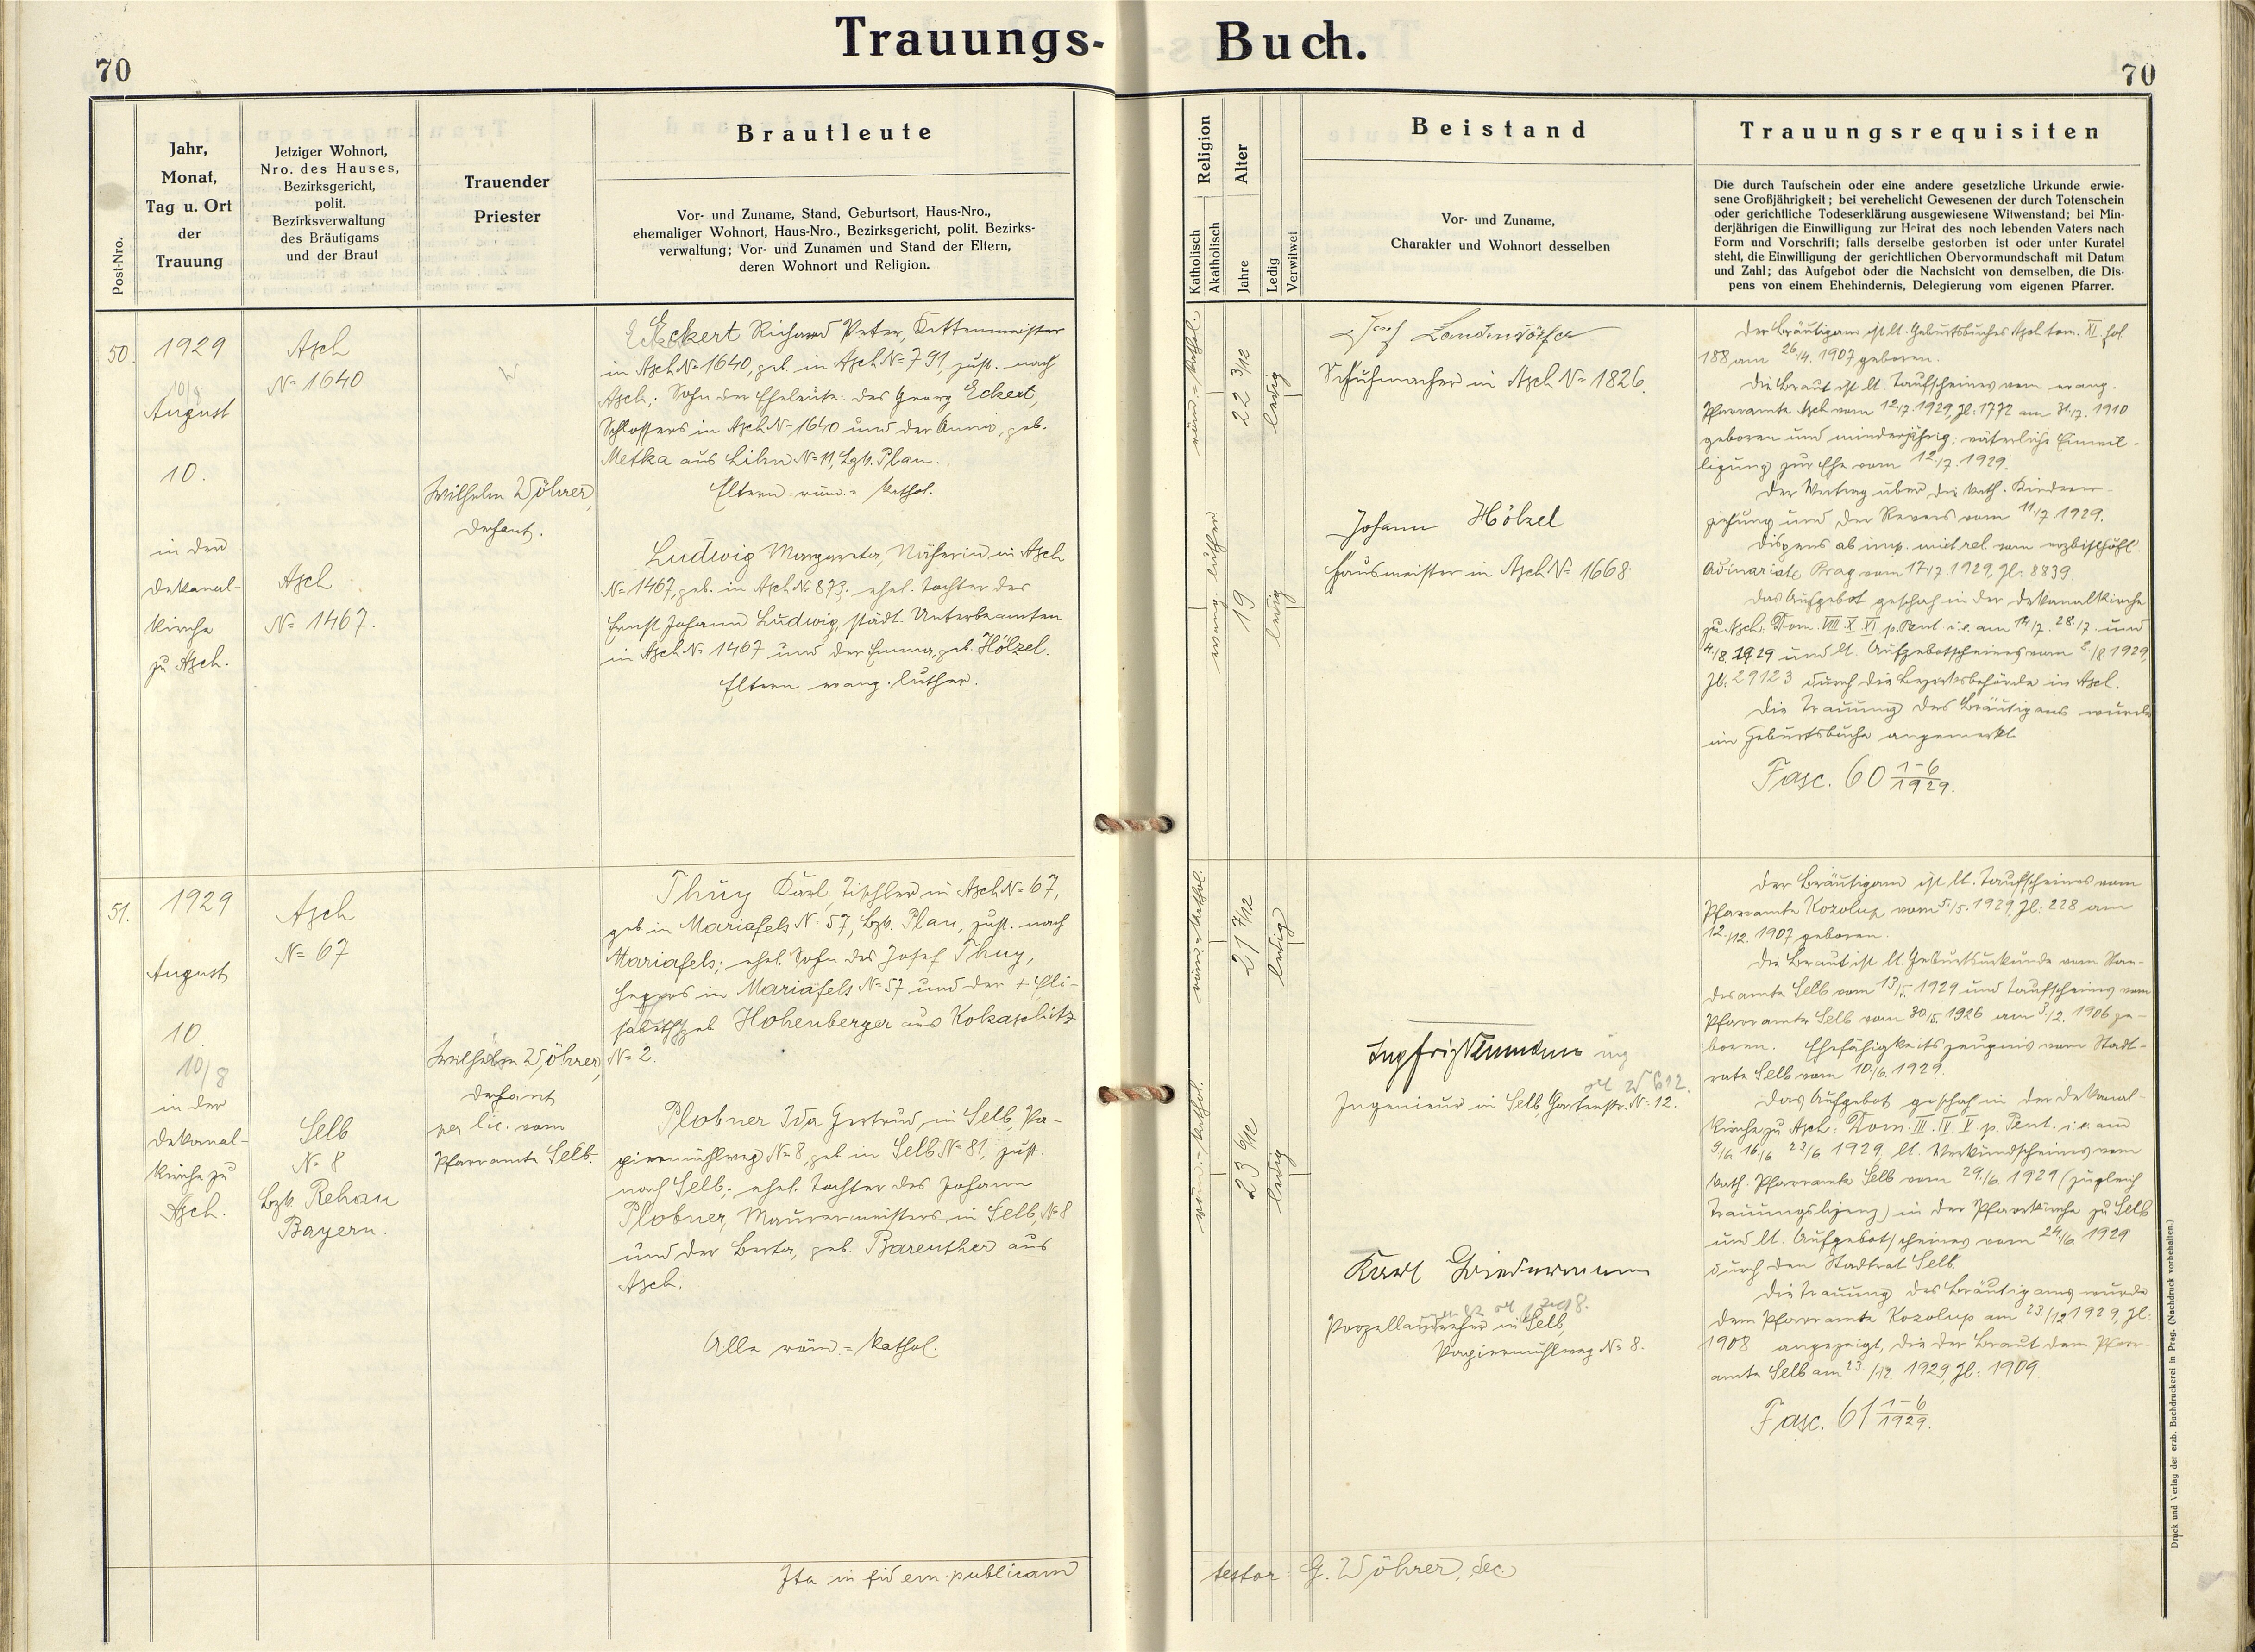 Trauungs-
Buch.
70
70
Post-Nro.
Jahr,
Monat,
Tag u. Ort
der
Trauung
Jetziger Wohnort,
Nro. des Hauses,
Bezirksgericht,
polit.
Bezirksverwaltung
des Bräutigams
und der Braut
Trauender
Priester
Brautleute
Vor- und Zuname, Stand, Geburtsort, Haus-Nro.,
ehemaliger Wohnort, Haus-Nro., Bezirksgericht, polit. Bezirks-
verwaltung; Vor- und Zunamen und Stand der Eltern,
deren Wohnort und Religion.
Religion
Katholisch
Akatholisch
Alter
Jahre
Ledig
Verwitwet
Beistand
Vor- und Zuname,
Charakter und Wohnort desselben
Trauungsrequisiten
Die durch Taufschein oder eine andere gesetzliche Urkunde erwie-
sene Großjährigkeit; bei verehelicht Gewesenen der durch Totenschein
oder gerichtliche Todeserklärung ausgewiesene Witwenstand; bei Min-
derjährigen die Einwilligung zur Heirat des noch lebenden Vaters nach
Form und Vorschrift; falls derselbe gestorben ist oder unter Kuratel
steht, die Einwilligung der gerichtlichen Obervormundschaft mit Datum
und Zahl; das Aufgebot oder die Nachsicht von demselben, die Dis-
pens von einem Ehehindernis, Delegierung vom eigenen Pfarrer.
50.
1929
10/8
August
10.
in der
Dekanal-
kirche
zu Asch.
Asch
No 1640
Asch
No 1467.
Wilhelm Wöhrer,
Dechant.
Eckert Richard Peter, Kettenmeister
in Asch No 1640, geb. in Asch No 791, zust. nach
Asch; Sohn der Eheleute: des Georg Eckert,
Schlossers in Asch No 1640 und der Anna, geb.
Metka aus Lihn No 11, Bzk. Plan.
Eltern röm.= kathol.
Ludwig Margareta, Näherin in Asch
No 1467, geb. in Asch No 873; ehel. Tochter des
Ernst Johann Ludwig, städt. Unterbeamten
in Asch No 1467 und der Emma, geb. Hölzel.
Eltern evang. luther.
röm.= kathol.
22 3/12
ledig
evang. luther.
19
ledig
Schuhmacher in Asch No 1826.
Johann Hölzel
Hausmeister in Asch No 1668
Der Bräutigam ist lt. Geburtsbuches Asch tom. XI. fol.
188 am 26./4. 1907 geboren.
Die Braut ist lt. Taufscheines vom evang.
Pfarramte Asch vom 12./7. 1929, Zl: 1772 am 31./7. 1910
geboren und minderjährig; väterliche Einwil-
ligung zur Ehe vom 12./7. 1929.
Der Vertrag über die kath. Kinderer-
ziehung und der Revers vom 11/7 1929.
Dispens ab imp. mixt. rel. vom erzbischöfl.
Ordinariate Prag vom 17./7. 1929, Zl: 8839.
Das Aufgebot geschah in der Dekanalkirche
zu Asch: Dom. VIII. X. XI. p. Pent. i. e. am 14./7. 28./7. und
4./8. 1929 und lt. Aufgebotscheines vom 2./8. 1929,
Zl: 29123 durch die Bezirksbehörde in Asch.
Die Trauung des Bräutigams wurde
im Geburtsbuche angemerkt.
Fasc. 60 1-6/1929.
51.
1929
August
10.
10/8
in der
Dekanal-
kirche zu
Asch.
Asch
No 67
Selb
No 8
Bzk. Rehau
Bayern.
Wilhelm Wöhrer,
Dechant
per lic. vom
Pfarramte Selb.
Thuy Karl, Tischler in Asch No 67,
geb. in Mariafels No 57, Bzk. Plan, zust. nach
Mariafels; ehel. Sohn des Josef Thuy,
Hegers in Mariafels No 57 und der + Eli-
sabeth geb. Hohenberger aus Kokaschitz
No 2.
Plobner Ida Gertrud, in Selb, Pa-
piermühlweg No 8, geb. in Selb No 81, zust.
nach Selb; ehel. Tochter des Johann
Plobner, Maurermeisters in Selb, No 8
und der Berta, geb. Bareuther aus
Asch.
Alle röm.= kathol.
röm.= kathol.
21 7/12
ledig
röm.= kathol.
23 6/12
ledig
Ingenieur in Selb, Gartenstr. No 12.
Karl Biedermann
Porzellandreher in Selb,
Papiermühlweg No 8.
Der Bräutigam ist lt. Taufscheines vom
Pfarramte Kozolup vom 5./5. 1929, Zl: 228 am
12./12. 1907 geboren.
Die Braut ist lt. Geburtsurkunde vom Stan-
desamte Selb vom 13/5 1929 und Taufscheines vom
Pfarramte Selb vom 30/5. 1926 am 5./2. 1906 ge-
boren. Ehefähigkeitszeugnis vom Stadt-
rate Selb vom 10./6. 1929.
Das Aufgebot geschah in der Dekanal-
kirche zu Asch: Dom. III. IV. V. p. Pent. i. e. am
9/6. 16./6. 23/6. 1929, lt. Verkündscheines vom
kath. Pfarramte Selb vom 29./6. 1929 (zugleich
Trauungslizenz) in der Pfarrkirche zu Selb
und lt. Aufgebotscheines vom 24./6. 1929
durch den Stadtrat Selb.
Die Trauung des Bräutigams wurde
dem Pfarramte Kozolup am 23./12. 1929, Zl:
1908 angezeigt, die der Braut dem Pfarr-
amte Selb am 23./12. 1929, Zl: 1909.
Fasc. 61 1-6/1929.
Ita in fidem publicam
testor: G. Wöhrer, dec.
Druck und Verlag der erzb. Buchdruckerei in Prag. (Nachdruck vorbehalten.)